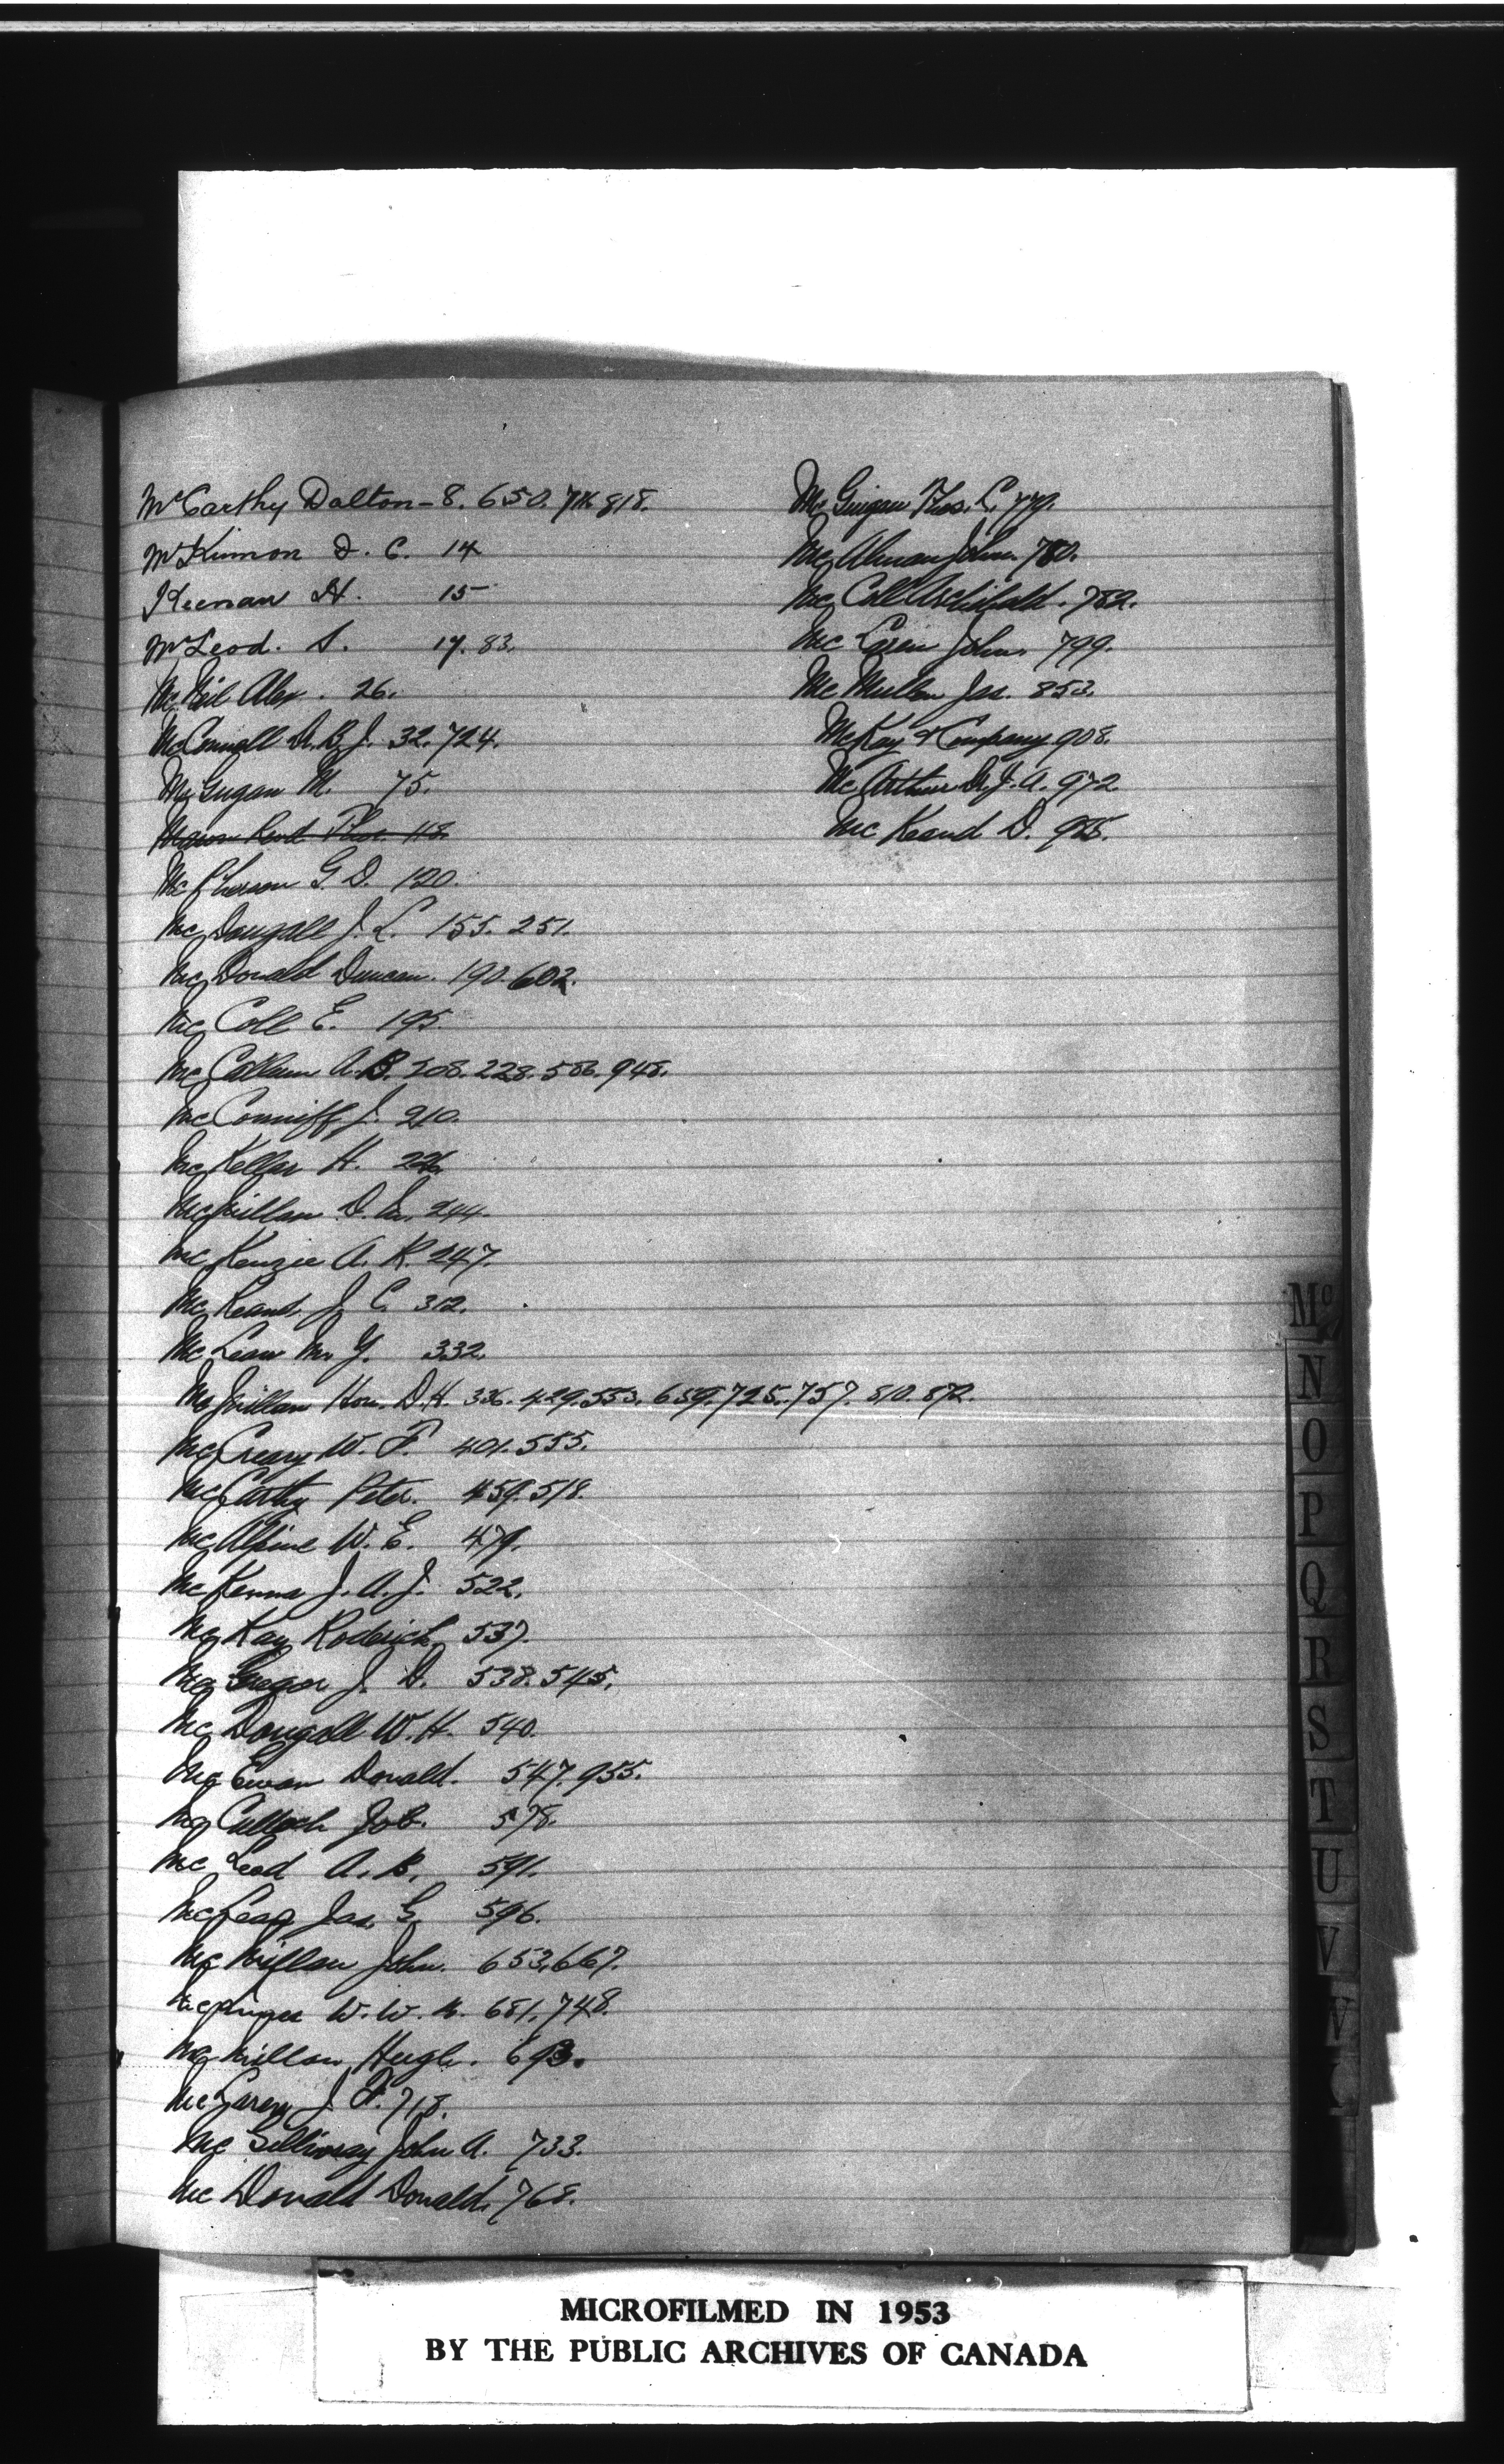 McCarthy Dalton - 8. 650. 818.
McKinnon D. C. 14
Keenan H. 15
McLeod. S. 17. 83.
McNeil Alex. 26.
McConnell D.B.J. 32. 724.
McGugan M. 75.
McPherson G. D. 120.
McDougall J. L. 155. 251.
McDonald Duncan. 190. 602.
McColl E. 195.
McCallum A.B. 208. 228. 586. 948.
McConniff J. 210.
McKellar H. 226
McMillan D. 244.
McKenzie A. K. 247.
McKeand. J. C. 312.
McLean M. Y. 332.
McMillan Hon. D.H. 336. 429. 553. 659. 725. 757. 810. 872.
McCreary W. F. 401. 555.
McCarthy Peter. 459. 518.
McAlpine W. E. 479.
McKenna J. A. J. 522.
McKay Roderick 537.
McGregor J. D. 538. 545.
McDougall W. H. 540.
McEwan Donald. 547. 955.
McCulloch Job. 578.
McLeod A. B. 591.
Jas. G. 596.
McMillan John. 653. 667.
McInnes W. W. B. 681. 748.
McMillan Hugh. 693.
McLaren J. F. 718.
McGillivray John A. 733.
McDonald Donald. 768.
McGuigan Thos. C. 779.
John. 780.
McColl Archibald. 782.
McLaren John. 799.
McMullen Jas. 853.
McKay & Company. 908.
McArthur D. J. A. 972.
McKeand D. 985.
Mc
N
O
P
Q
R
S
T
U
V
W
MICROFILMED IN 1953
BY THE PUBLIC ARCHIVES OF CANADA